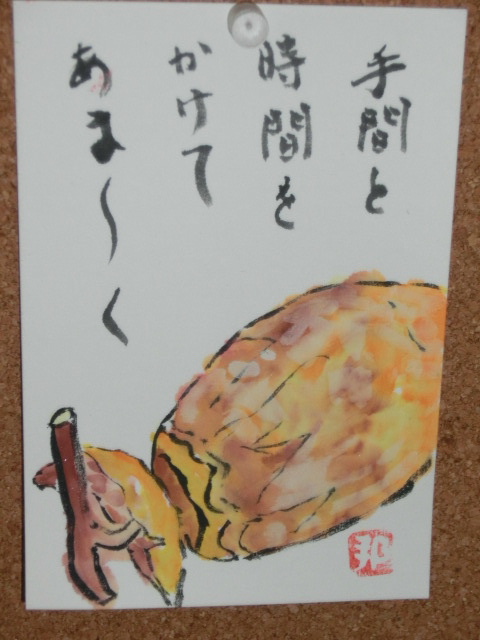 手間と
時間を
かけて
あま〜く
和